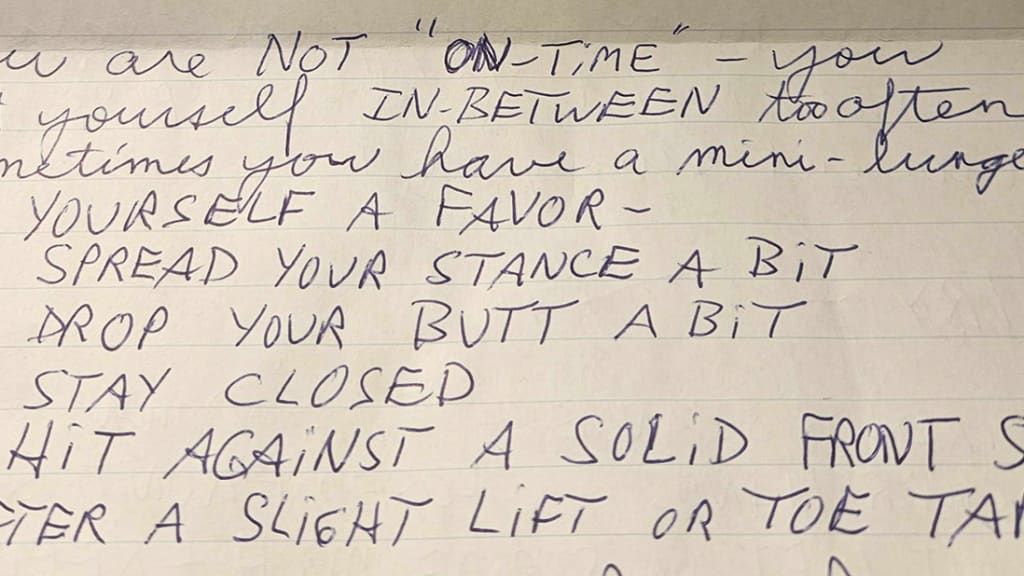 are NOT "ON-TiME" – you
yourself IN-BETWEEN too often
you have a mini-lunge
YOURSELF A FAVOR –
SPREAD YOUR STANCE A BiT
DROP YOUR BUTT A BiT
STAY CLOSED
HiT AGAiNST A SOLiD FRONT
A SLiGHT LiFT OR TOE